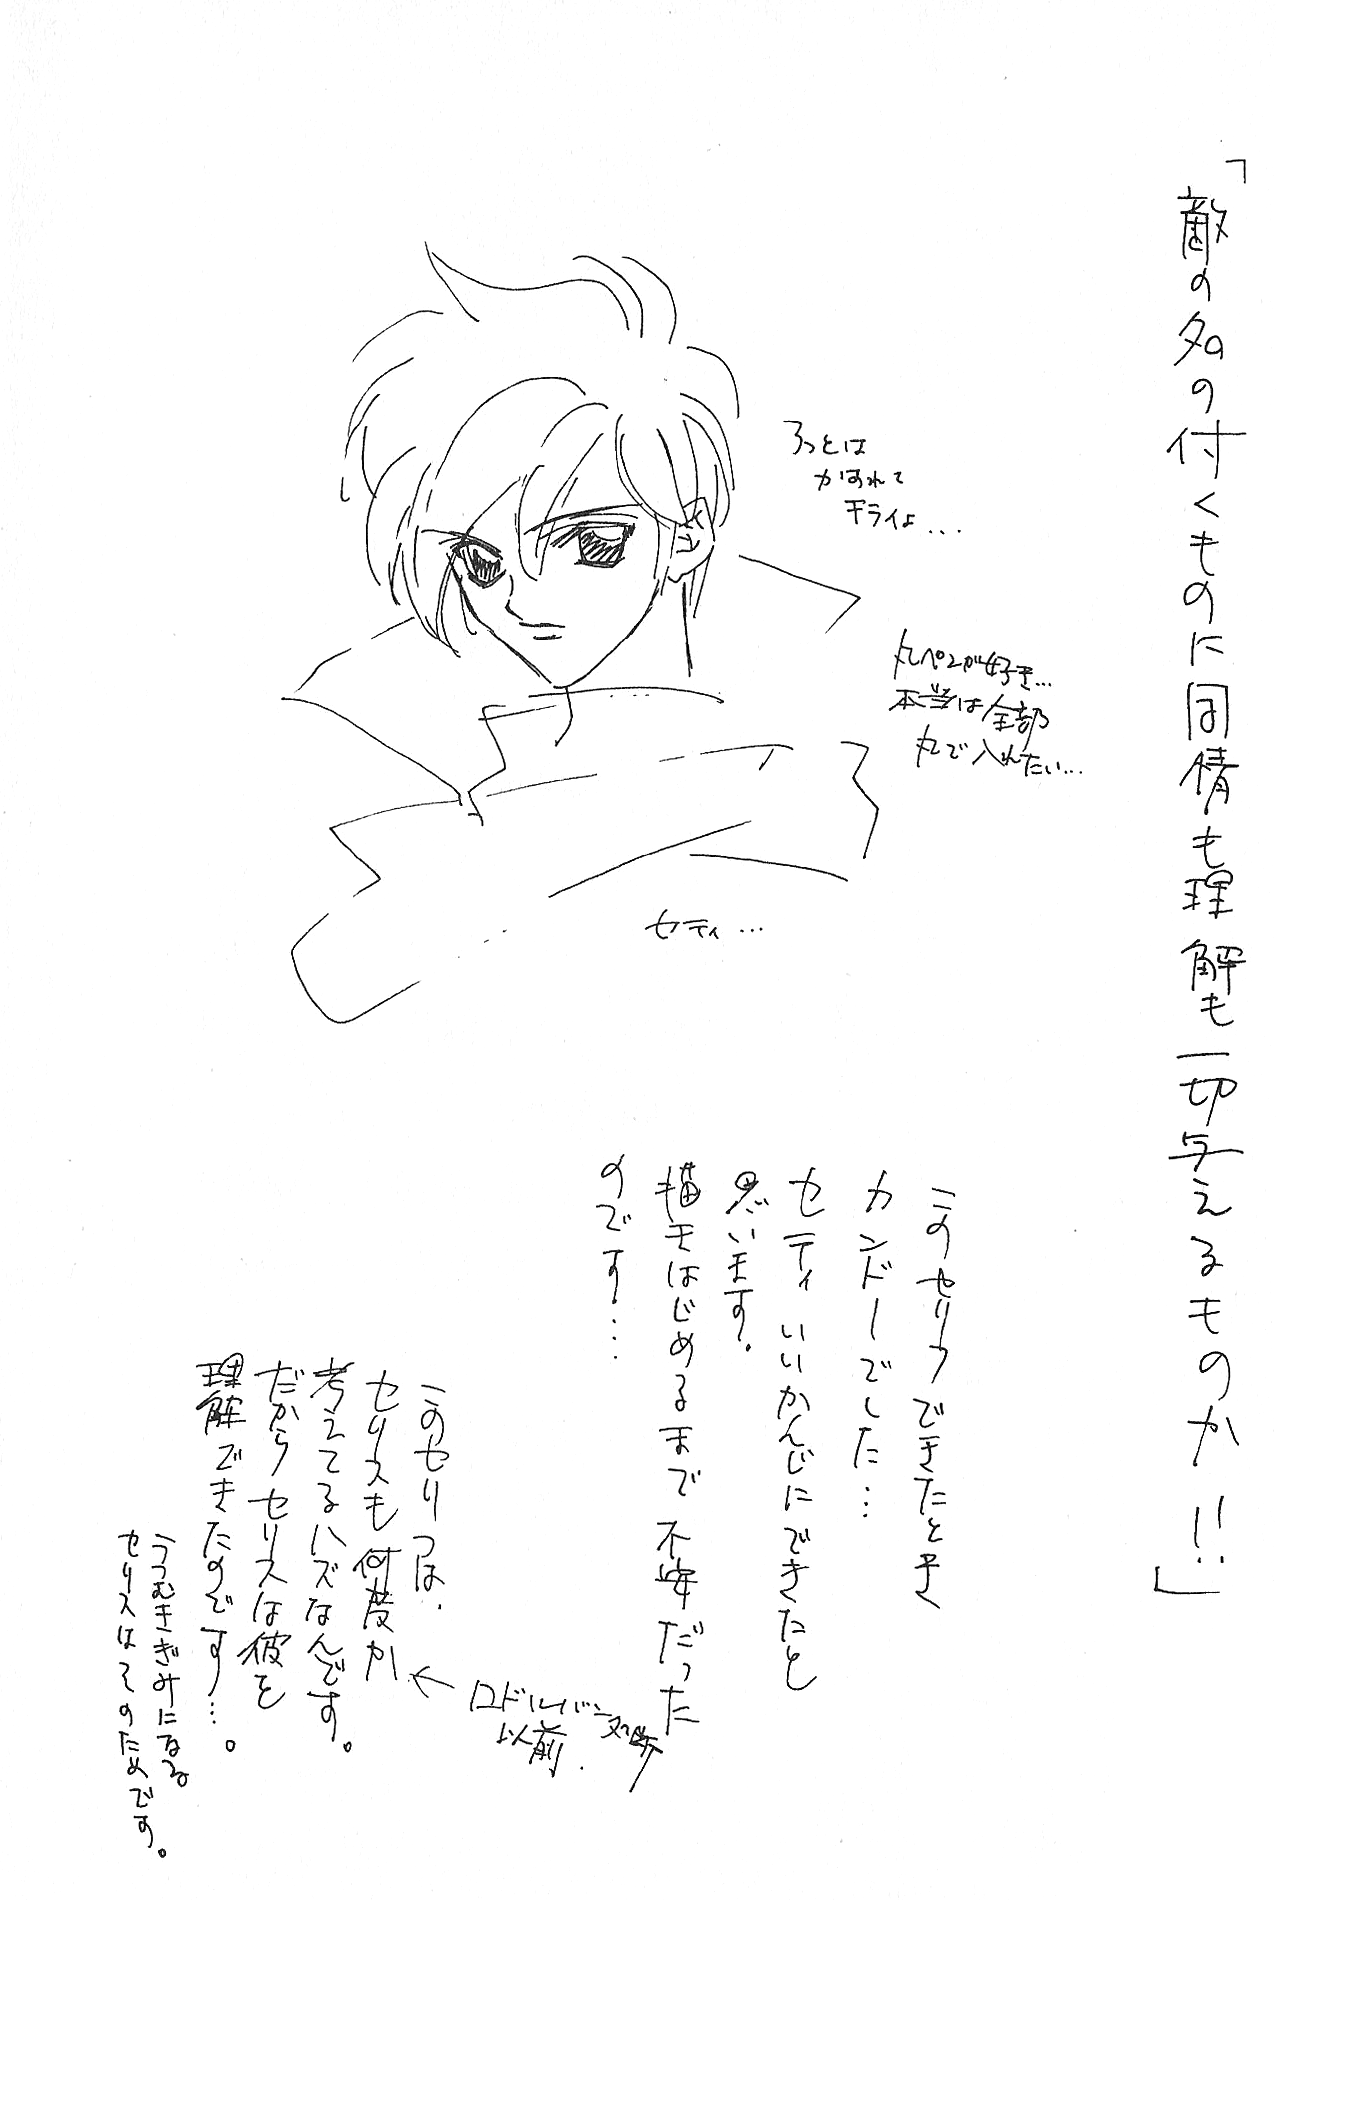 「敵の名の付くものに同情も理解も一切与えるものか!!」
ろっとは
かすれて
キライよ...
丸ペンが好き...
本当は全部
丸で入れたい...
セティ...
このセリフできたとき
カンドーでした...
セティ いいかんじにできたと
思います。
描きはじめるまで不安だった
のです...
このセリフは、
セリスも何度か
考えてるハズなんです。
だからセリスは彼を
理解できたのです...。
←ロドルバン
以前.
うつむきぎみになる
セリスはそのためです。